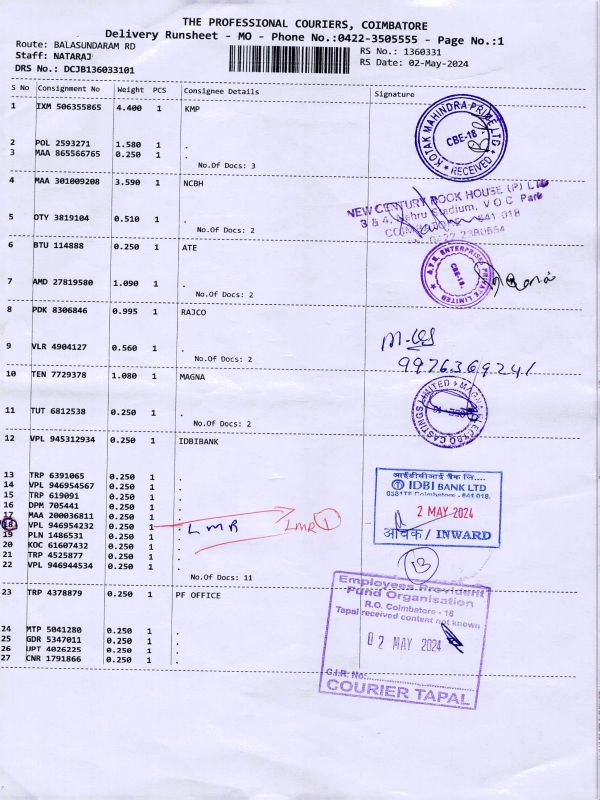 THE PROFESSIONAL COURIERS, COIMBATORE
Delivery Runsheet - MO - Phone No.:0422-3505555 - Page No.:1
Route: BALASUNDARAM RD
RS No.: 1360331
Staff: NATARAJ
RS Date: 02-May-2024
DRS No.: DCJB136033101
S No Consignment No Weight PCS Consignee Details Signature
1 IXM 506355865 4.400 1 KMP
KOTAK MAHINDRA PRIME LTD
CBE-18
RECEIVED
2 POL 2593271 1.580 1 .
3 MAA 865566765 0.250 1 .
No.Of Docs: 3
4 MAA 301009208 3.590 1 NCBH
NEW CENTURY BOOK HOUSE (P) LTD
3 & 4, Nehru Stadium, V O C Park
COIMBATORE - 641 018
0422 2380554
5 OTY 3819104 0.510 1 .
No.Of Docs: 2
6 BTU 114888 0.250 1 ATE
A.T.E. ENTERPRISES PRIVATE LIMITED
CBE-18.
7 AMD 27819580 1.090 1 .
No.Of Docs: 2
8 PDK 8306846 0.995 1 RAJCO
9976369241
9 VLR 4904127 0.560 1 .
No.Of Docs: 2
10 TEN 7729378 1.080 1 MAGNA
MAGNA ELECTRO CASTINGS LIMITED
11 TUT 6812538 0.250 1 .
No.Of Docs: 2
12 VPL 945312934 0.250 1 IDBIBANK
13 TRP 6391065 0.250 1 .
14 VPL 946954567 0.250 1 .
15 TRP 619091 0.250 1 .
16 DPM 705441 0.250 1 .
17 MAA 200036811 0.250 1 .
18 VPL 946954232 0.250 1 . LMR LMR 1
19 PLN 1486531 0.250 1 .
20 KOC 61607432 0.250 1 .
21 TRP 4525877 0.250 1 .
22 VPL 946944534 0.250 1 .
No.Of Docs: 11
आईडीबीआई बैंक लि....
IDBI BANK LTD
Coimbatore - 641 018.
2 MAY 2024
आवक / INWARD
13
23 TRP 4378879 0.250 1 PF OFFICE
24 MTP 5041280 0.250 1 .
25 GDR 5347011 0.250 1 .
26 UPT 4026225 0.250 1 .
27 CNR 1791866 0.250 1 .
Employees Provident
Fund Organisation
R.O. Coimbatore - 18
Tapal received content not known
02 MAY 2024
G.I.R. No:
COURIER TAPAL